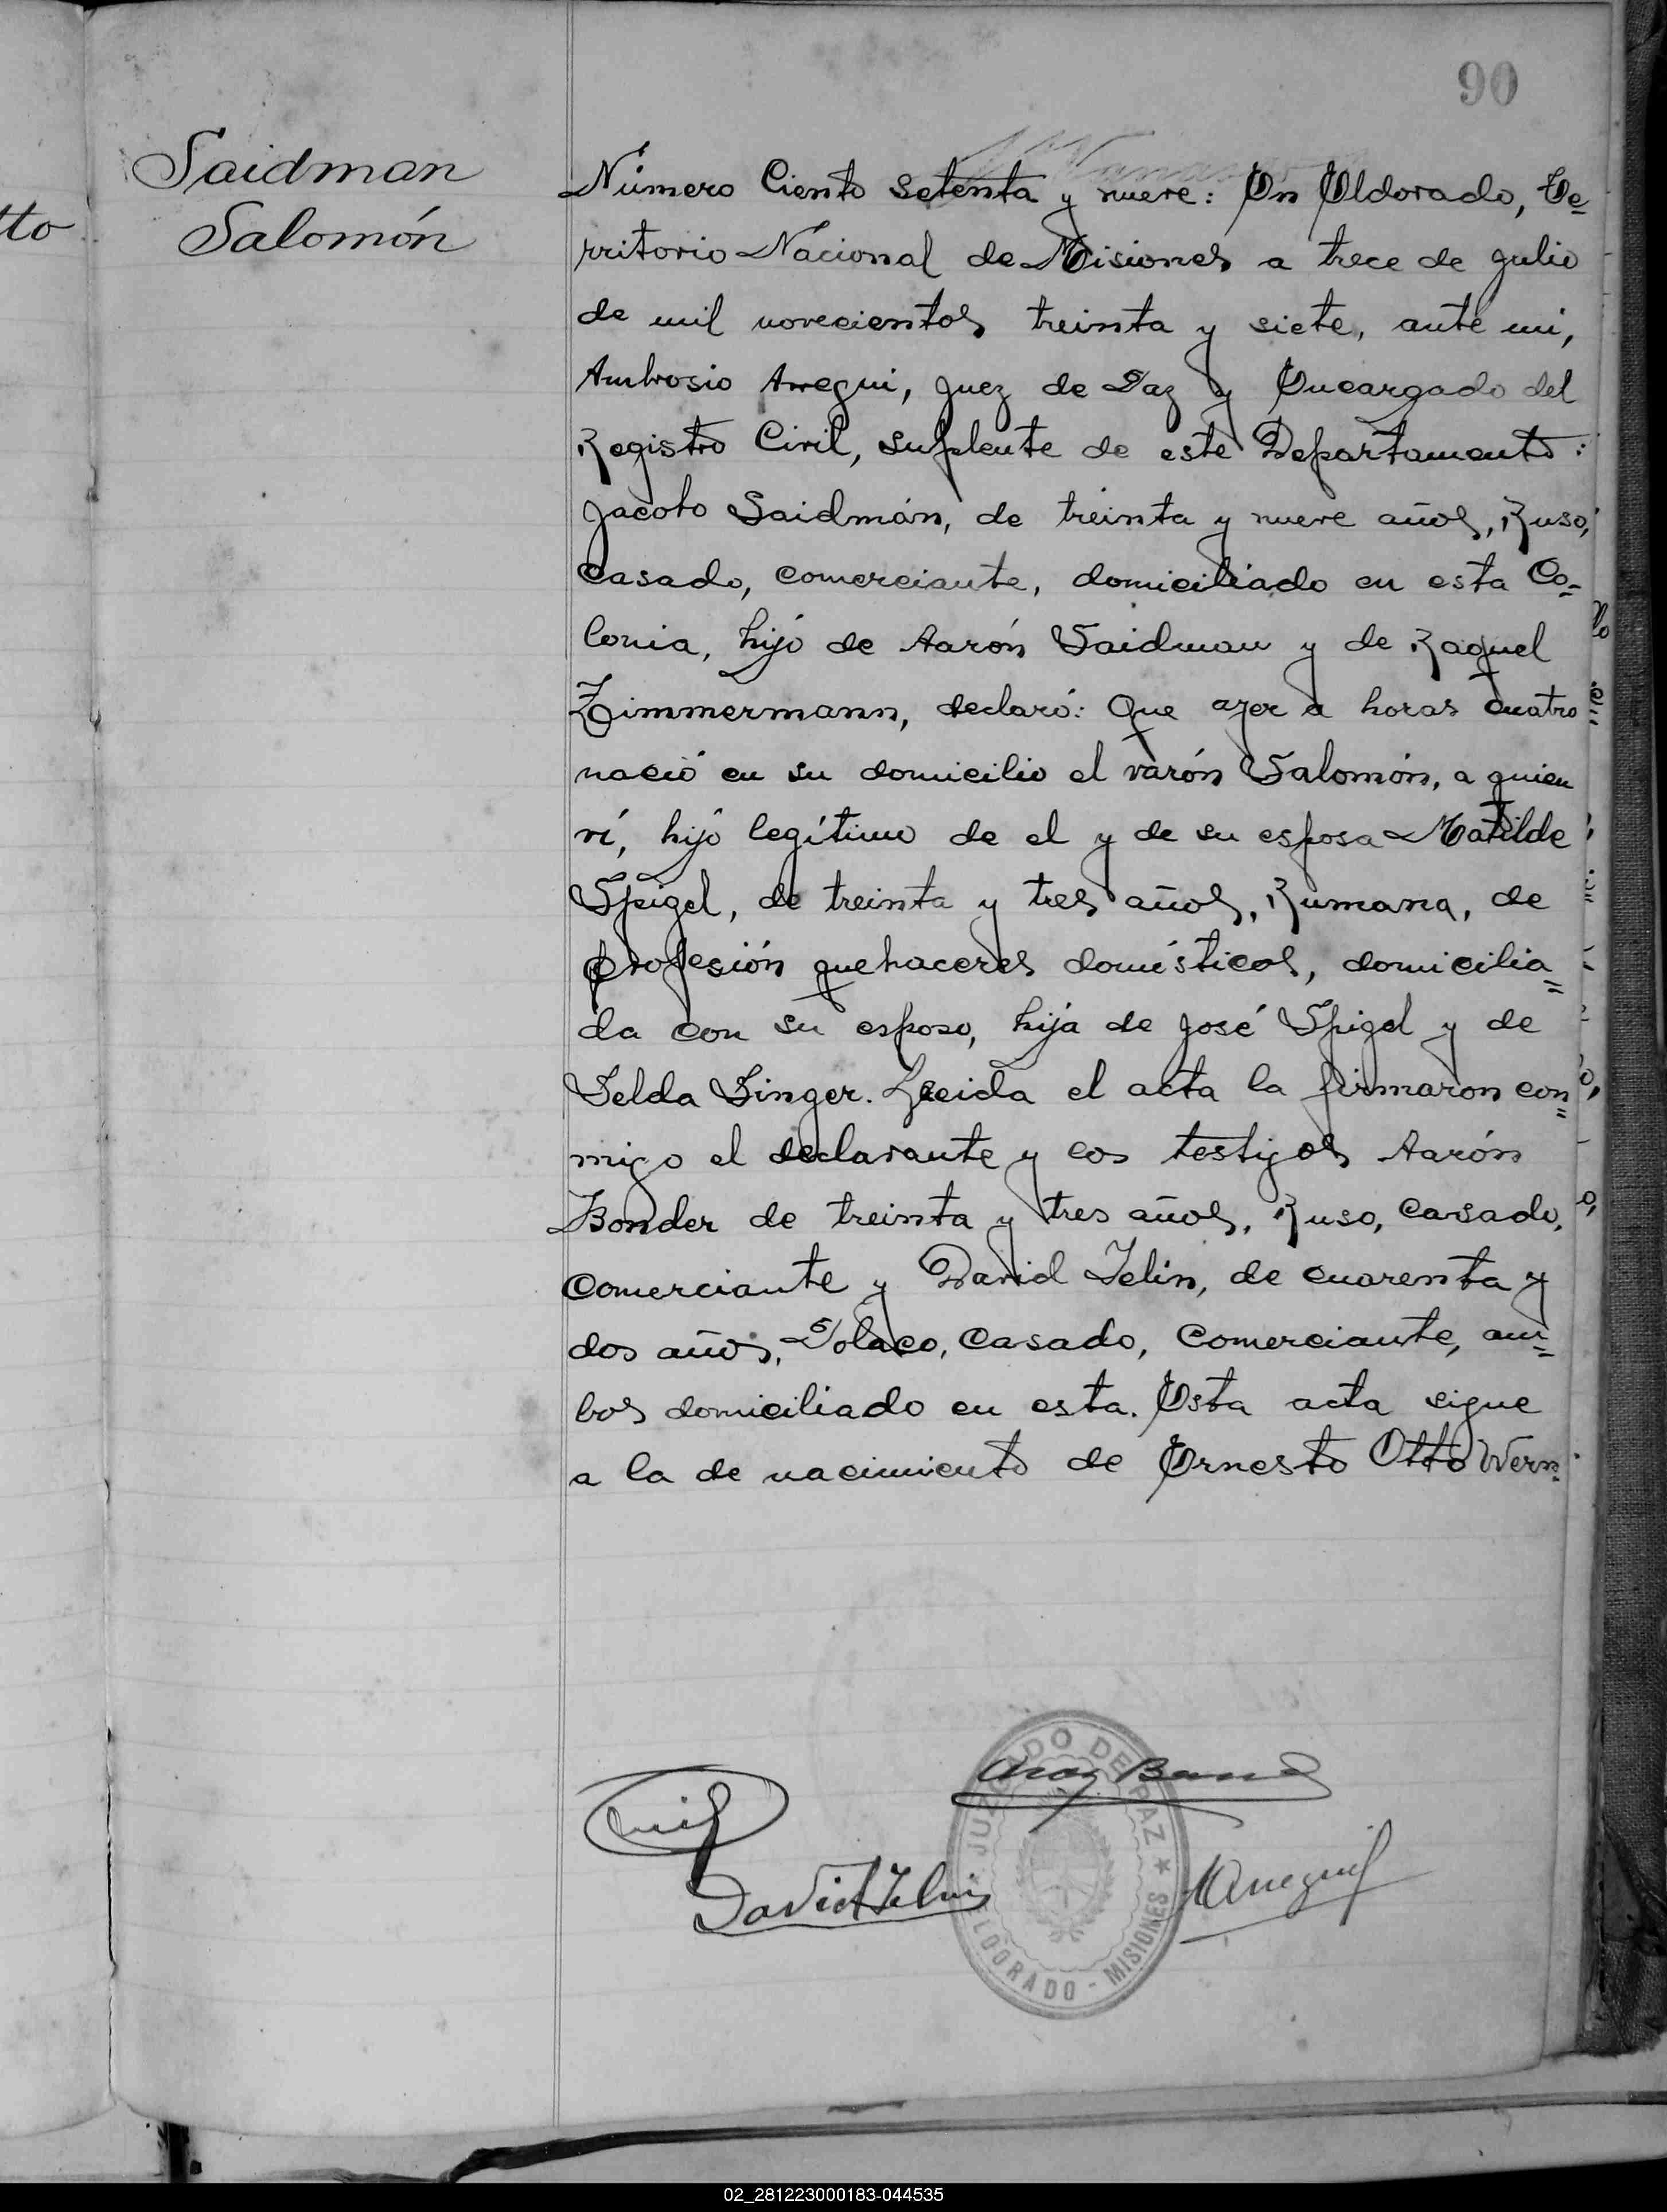 90
Saidman
Salomón
tto
Número Ciento setenta y nueve: En Eldorado, Te=
rritorio Nacional de Misiones a trece de Julio
de mil novecientos treinta y siete, ante mi,
Ambrosio Arregui, Juez de Paz y Encargado del
Registro Civil, suplente de este Departamento:
Jacobo Saidmán, de treinta y nueve años, Ruso,
casado, comerciante, domiciliado en esta Co=
lonia, hijo de Aarón Saidman y de Raquel
Zimmermann, declaró: Que ayer a horas cuatro
nació en su domicilio el varón Salomón, a quien
ví, hijo legítimo de el y de su esposa Matilde
Spigel, de treinta y tres años, Rumana, de
profesión quehaceres domésticos, domicilia=
da con su esposo, hija de José Spigel y de
Selda Singer. Leeida el acta la firmaron con=
migo el declarante y los testigos Aarón
Bonder de treinta y tres años, Ruso, casado,
comerciante y David Jelin, de cuarenta y
dos años, Polaco, casado, comerciante, am=
bos domiciliado en esta. Esta acta sigue
a la de nacimiento de Ernesto Otto Wern.
David Jelin
Arregui
JUZGADO DE PAZ ★
ELDORADO - MISIONES
02_281223000183-044535